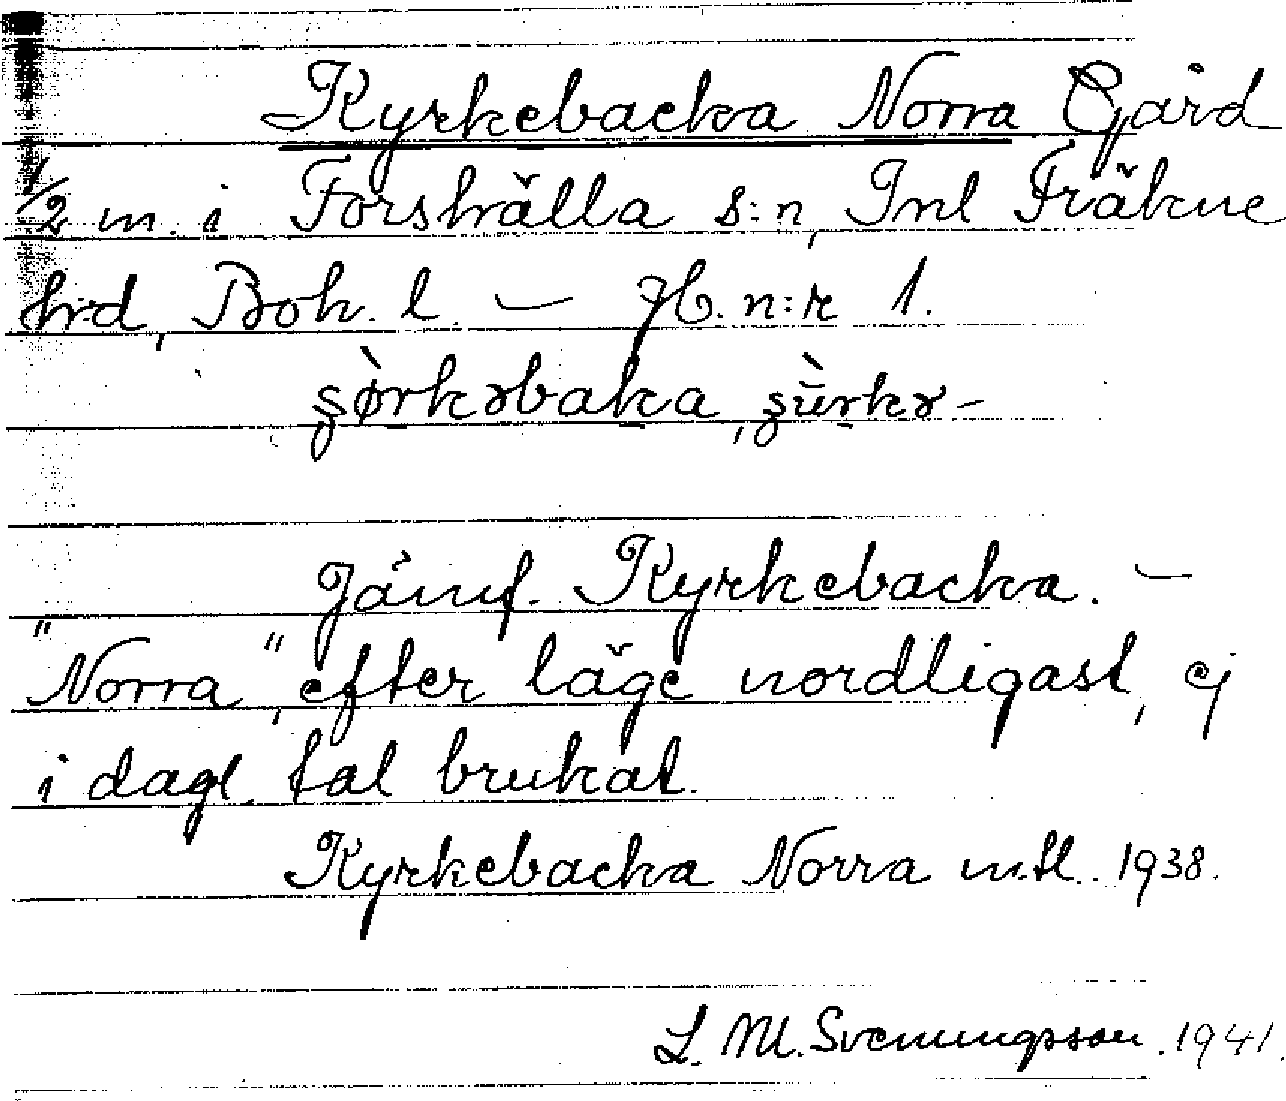 Kyrkebacka Norra Gård
1/2 m. i Forshälla s:n, Inl Fräkne
hrd, Boh. l. — Jb. n:r 1.
Jämf. Kyrkebacka. —
"Norra", efter läge nordligast, ej
i dagl. tal brukat.
Kyrkebacka Norra mtl. 1938.
L. M. Svenungsson. 1941.